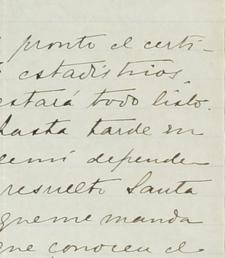 pronto el certi-
estadistrios,
estará todo listo.
hasta tarde en
depende
resuelto Santa
que me manda
que conocen el